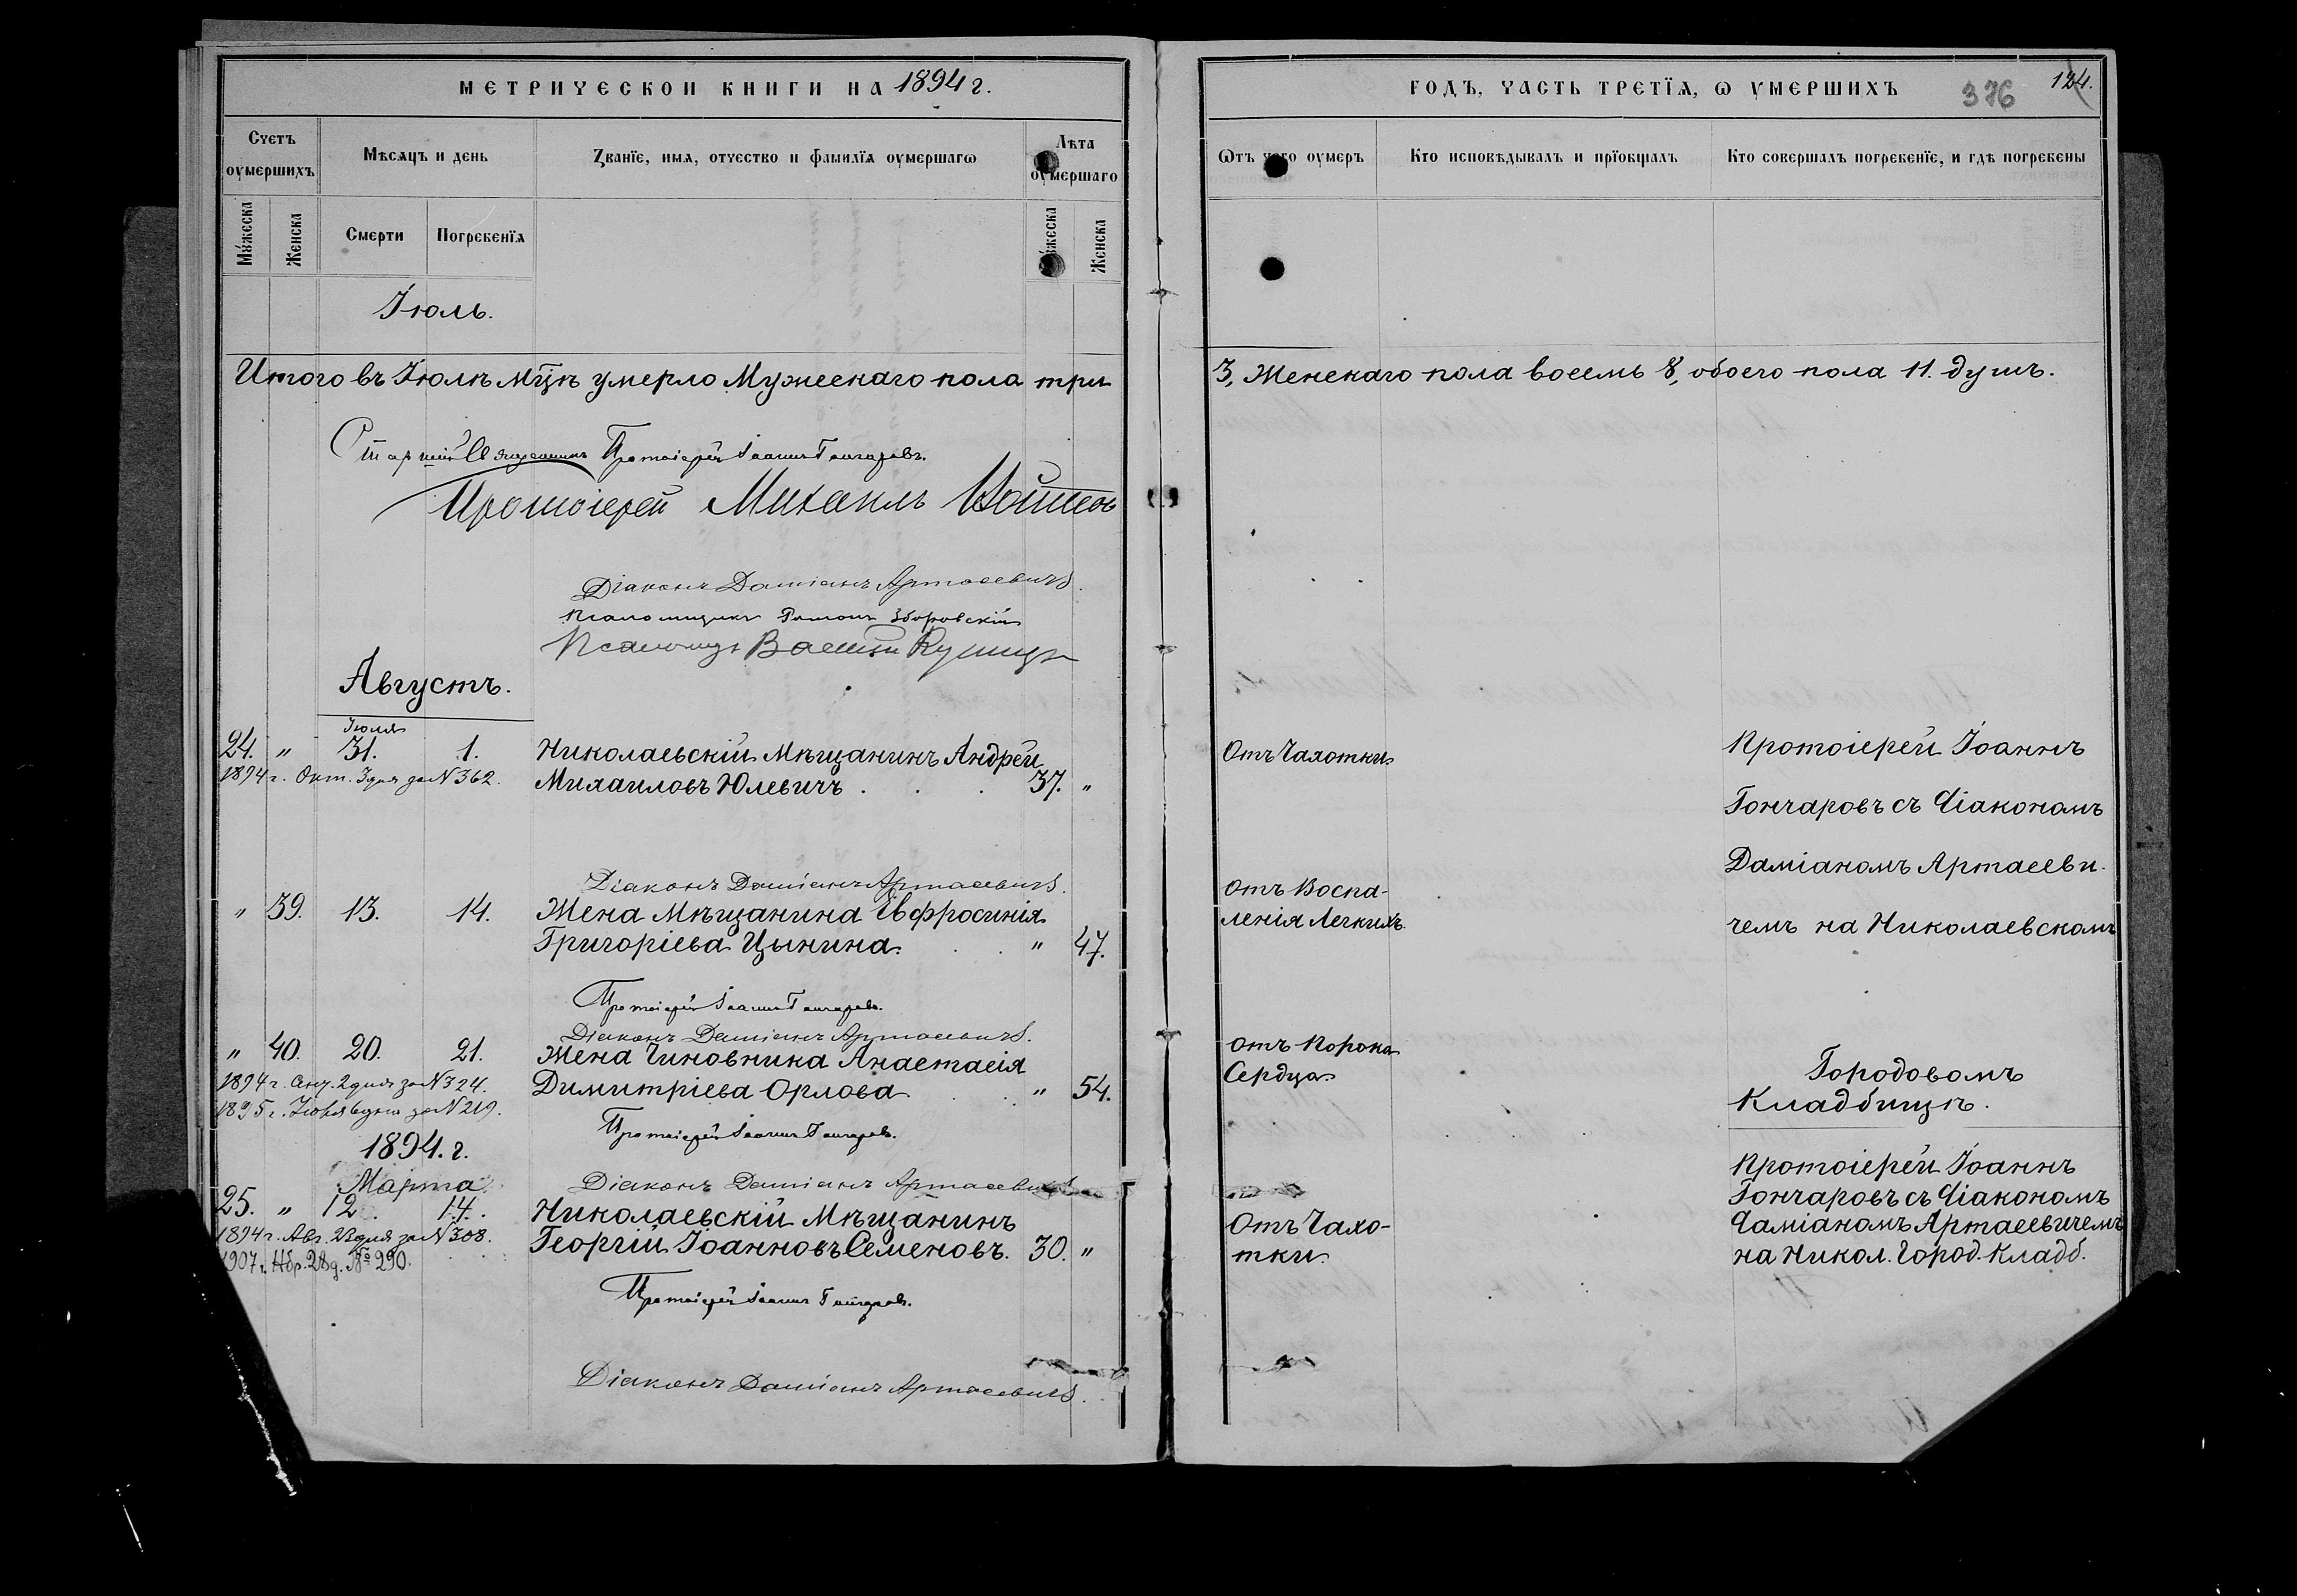 МЕТРИЧЕСКОИ КНИГИ НА 1894 г.
Счетъ оумершихъ
Мѣсяцъ и день
Званїе, имя, отчество и фамилїя оумершагѡ
Лѣта оумершаго
Мꙋжеска
Женска
Смерти
Погребенїя
Мꙋжеска
Женска
Іюль.
Итого въ Іюлѣ мцѣ умерло Мужескаго пола три
Старшій Священникъ Протоіерей Іоаннъ Гончаровъ.
Протоіерей Михаилъ
Діаконъ Даміанъ Артасевичъ.
Псаломщикъ Зборовскій
Псаломщ. Василій
Августъ.
Іюля
24. " 31. 1. Николаевскій Мѣщанинъ Андрей
1894 г. Окт. 3 дня за N 362. Михаиловъ Юлевичъ . . . 37. "
Діаконъ Даміанъ Артасевичъ.
" 39. 13. 14. Жена Мѣщанина Евфросинія
Григоріева Цынина. . . " 47.
Протоіерей Іоаннъ Гончаровъ.
Діаконъ Даміанъ Артасевичъ.
" 40. 20. 21. Жена Чиновника Анастасія
1894 г. Сен. 2 дня за N 324. Димитріева Орлова . . " 54.
1895 г. за N 219.
Протоіерей Іоаннъ Гончаровъ.
1894. г.
Марта.
Діаконъ Даміанъ Артасевичъ
25. " 12. 14. Николаевскій Мѣщанинъ
1894 г. Авг. 23 дня за N 308. Георгій Іоанновъ Семеновъ. 30. "
1907 г. Нбр. 28 д. № 290.
Протоіерей Іоаннъ Гончаровъ.
Діаконъ Даміанъ Артасевичъ.
ГОДЪ, ЧАСТЬ ТРЕТЇЯ, Ѡ УМЕРШИХЪ
376
124.
Ѿтъ чего оумеръ
Кто исповѣдывалъ и прїобщалъ
Кто совершалъ погребенїе, и гдѣ погребены
3, Женскаго пола восемь 8, обоего пола 11. душъ.
Отъ Чахотки
Отъ Воспа-
ленія Легкихъ.
Отъ Порока
Сердца.
Отъ Чахо-
тки.
Протоіерей Іоаннъ
Гончаровъ съ Діакономъ
Даміаномъ Артасеви-
чемъ на Николаевскомъ
Городовомъ
Кладбищѣ.
Протоіерей Іоаннъ
Гончаровъ съ Діакономъ
Даміаномъ Артасевичемъ
на Никол. Город. Кладб.